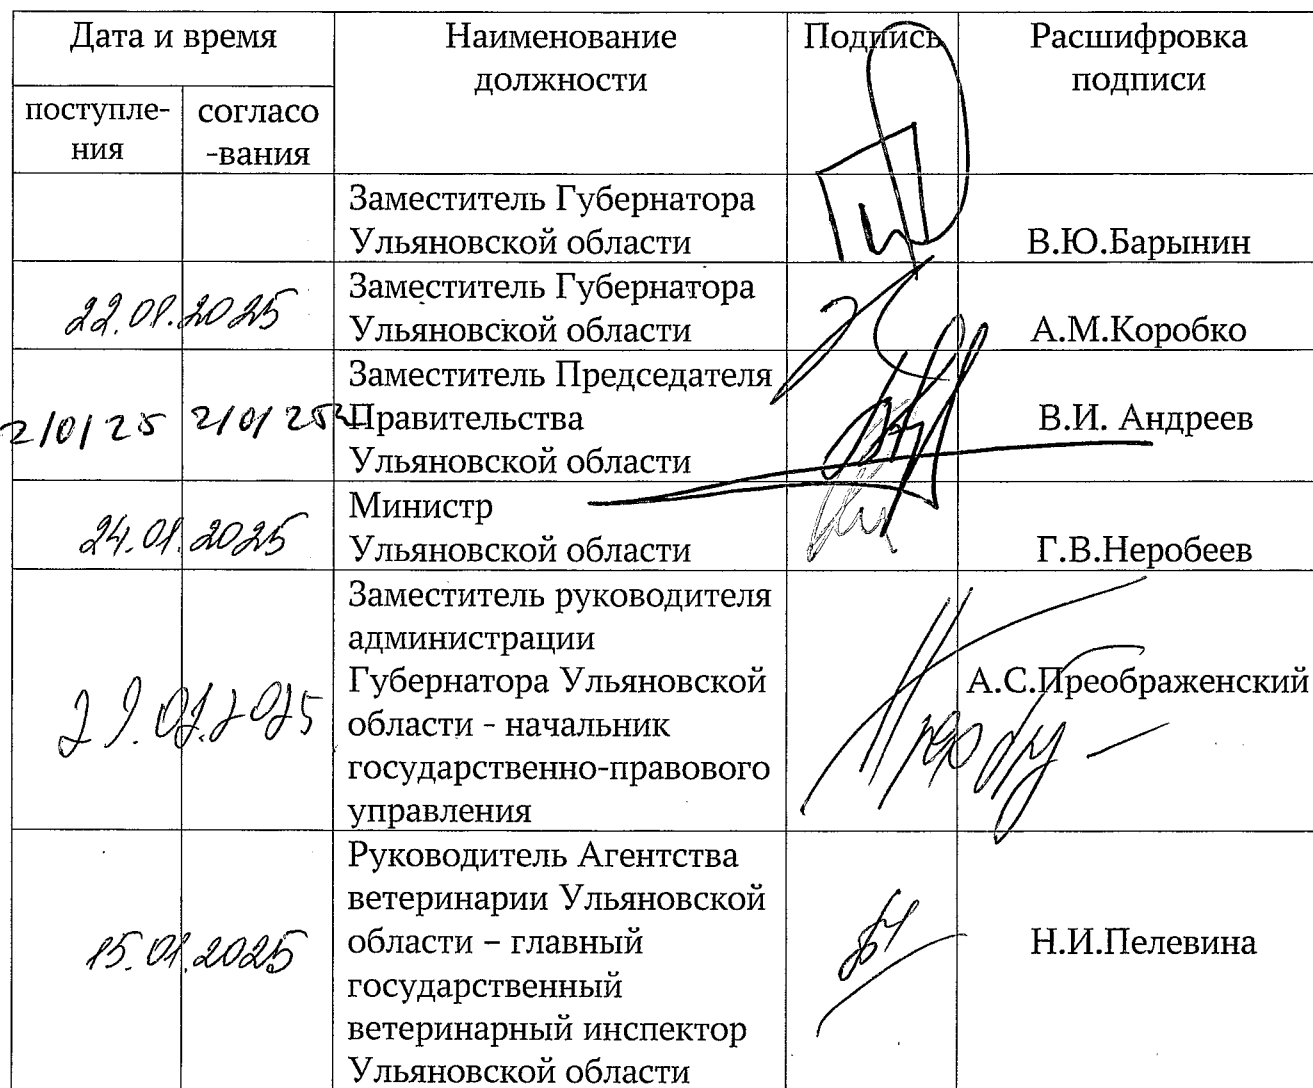 Дата и время
Наименование должности
Подпись
Расшифровка подписи
поступле-
ния
согласо
-вания
Заместитель Губернатора
Ульяновской области
В.Ю.Барынин
22.01.2025
Заместитель Губернатора
Ульяновской области
А.М.Коробко
Заместитель Председателя
Правительства
Ульяновской области
В.И. Андреев
24.01.2025
Министр
Ульяновской области
Г.В.Неробеев
Заместитель руководителя
администрации
Губернатора Ульяновской
области - начальник
государственно-правового
управления
А.С.Преображенский
15.01.2025
Руководитель Агентства
ветеринарии Ульяновской
области – главный
государственный
ветеринарный инспектор
Ульяновской области
Н.И.Пелевина